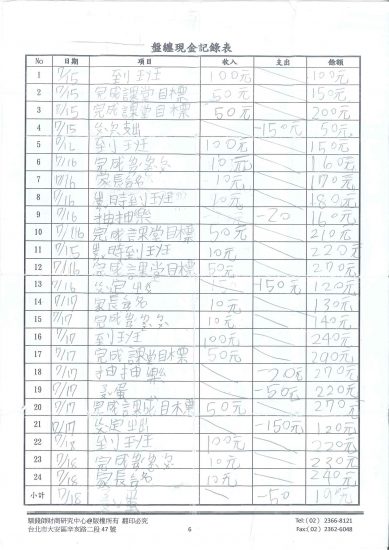 盤纏現金記錄表
No 日期 項目 收入 支出 餘額
1 7/15 到班 100元 100元
2 7/15 完成課堂目標 50元 150元
3 7/15 完成課堂目標 50元 200元
4 7/15 支出 -150元 50元
5 到班 100元 150元
6 7/16 完成 10元 160元
7 7/16 家長簽名 10元 170元
8 7/16 準時到班 10元 180元
9 7/16 抽抽樂 -20 160元
10 7/16 完成課堂目標 50元 210元
11 7/15 準時到班 10元 220元
12 7/16 完成課堂目標 50元 270元
13 7/16 -150元 120元
14 7/17 家長簽名 10元 130元
15 7/17 完成 10元 140元
16 7/17 到班 100元 240元
17 7/17 完成課堂目標 50元 290元
18 7/17 抽抽樂 -20元 270元
19 7/17 蛋 -50元 220元
20 7/17 完成課堂目標 50元 270元
21 7/17 -150元 120元
22 7/18 到班 100元 220元
23 7/18 完成 10元 230元
24 7/18 家長簽名 10元 240元
小計 7/18 -50 190元
騏驥師財商研究中心@版權所有 翻印必究 Tel:(02) 2366-8121
台北市大安區辛亥路二段47號 6 Fax:(02) 2362-6048